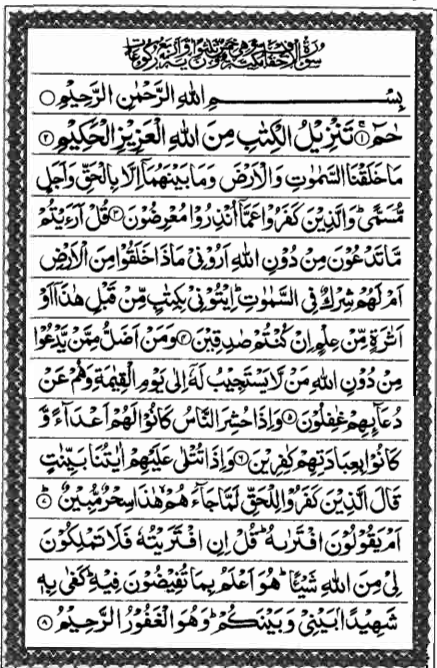 سورة الاحقاف مكية
بِسْمِ اللهِ الرَّحْمٰنِ الرَّحِيْمِ
حٰمٓ ۚ﴿۱﴾ تَنْزِيْلُ الْكِتٰبِ مِنَ اللهِ الْعَزِيْزِ الْحَكِيْمِ ﴿۲﴾
مَا خَلَقْنَا السَّمٰوٰتِ وَالْاَرْضَ وَمَا بَيْنَهُمَآ اِلَّا بِالْحَقِّ وَاَجَلٍ
مُّسَمًّى ؕ وَالَّذِيْنَ كَفَرُوْا عَمَّآ اُنْذِرُوْا مُعْرِضُوْنَ ﴿۳﴾ قُلْ اَرَءَيْتُمْ
مَّا تَدْعُوْنَ مِنْ دُوْنِ اللهِ اَرُوْنِيْ مَاذَا خَلَقُوْا مِنَ الْاَرْضِ
اَمْ لَهُمْ شِرْكٌ فِي السَّمٰوٰتِ ؕ اِيْتُوْنِيْ بِكِتٰبٍ مِّنْ قَبْلِ هٰذَآ اَوْ
اَثٰرَةٍ مِّنْ عِلْمٍ اِنْ كُنْتُمْ صٰدِقِيْنَ ﴿۴﴾ وَمَنْ اَضَلُّ مِمَّنْ يَّدْعُوْا
مِنْ دُوْنِ اللهِ مَنْ لَّا يَسْتَجِيْبُ لَهٗٓ اِلٰى يَوْمِ الْقِيٰمَةِ وَهُمْ عَنْ
دُعَآئِهِمْ غٰفِلُوْنَ ﴿۵﴾ وَاِذَا حُشِرَ النَّاسُ كَانُوْا لَهُمْ اَعْدَآءً وَّ
كَانُوْا بِعِبَادَتِهِمْ كٰفِرِيْنَ ﴿۶﴾ وَاِذَا تُتْلٰى عَلَيْهِمْ اٰيٰتُنَا بَيِّنٰتٍ
قَالَ الَّذِيْنَ كَفَرُوْا لِلْحَقِّ لَمَّا جَآءَهُمْ ۙ هٰذَا سِحْرٌ مُّبِيْنٌ ؕ﴿۷﴾
اَمْ يَقُوْلُوْنَ افْتَرٰىهُ ؕ قُلْ اِنِ افْتَرَيْتُهٗ فَلَا تَمْلِكُوْنَ
لِيْ مِنَ اللهِ شَيْئًا ؕ هُوَ اَعْلَمُ بِمَا تُفِيْضُوْنَ فِيْهِ ؕ كَفٰى بِهٖ
شَهِيْدًۢا بَيْنِيْ وَبَيْنَكُمْ ؕ وَهُوَ الْغَفُوْرُ الرَّحِيْمُ ﴿۸﴾